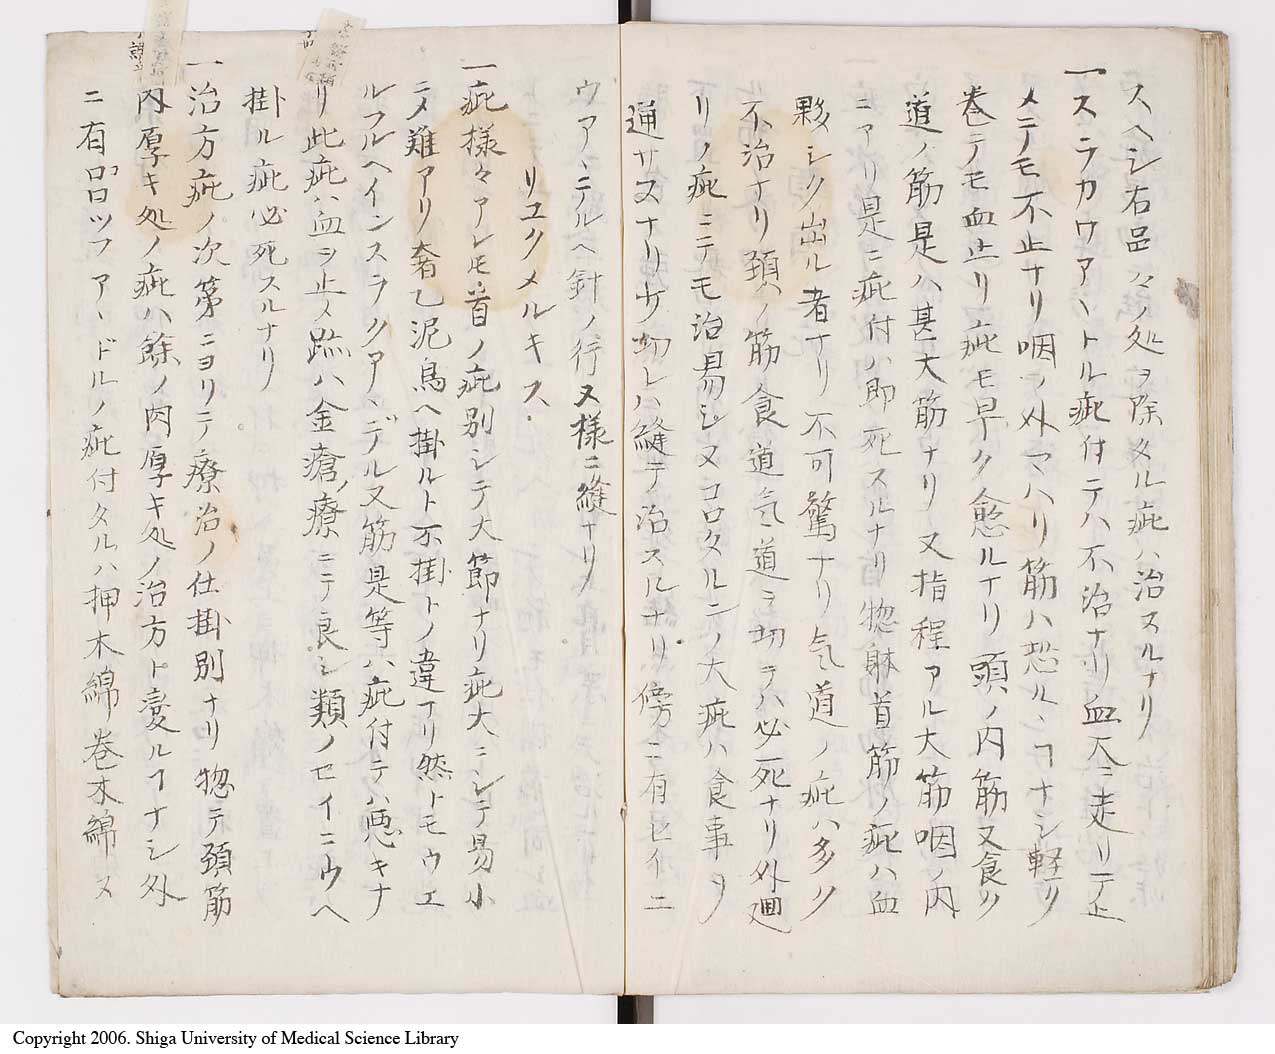 スヘシ右品々ノ処ヲ除タル疵ハ治スルナリ
一スラカウアヽトル疵付テハ不治ナリ血天ニ走リテ止
メテモ不止ナリ咽ノ外マハリ筋ハ恐ルヽコナシ軽リ
巻テモ血止リ疵モ早ク愈ルナリ頭ノ内筋又食ノ
道ノ筋是ハ甚大筋ナリ又指程アル大筋咽ノ内
ニアリ是ニ疵付ハ即死スルナリ惣躰首筋ノ疵ハ血
夥シク出ル者ナリ不可驚ナリ気道ノ疵ハ多ク
不治ナリ頚ノ筋食道気道ヲ切ラハ必死ナリ外廻
リノ疵ニテモ治易シ又コロタルンノ大疵ハ食事ヲ
通サヌナリサ切レハ縫テ治スルナリ傍ニ有セイニ
ウアヽニテルヘ針ノ行ヌ様ニ縫ナリ
リユクメルキス
一疵様々アレモ首ノ疵別シテ大節ナリ疵大ニシテ易小
ニメ難アリ奢乙泥鳥ヘ掛ルト不掛トノ違アリ然トモウエ
ルフルヘインスラクアヽデル又筋是等ハ疵付テハ悪キナ
リ此疵ハ血ヲ止メ跡ハ金瘡ノ療ニテ良シ類ノセイニウヘ
掛ル疵必死スルナリ
一治方疵ノ次第ニヨリテ療治ノ仕掛別ナリ惣テ頚筋
内厚キ処ノ疵ハ餘ノ肉厚キ処ノ治方ト変ルコナシ外
ニ有ロロツフアヽドルノ疵付タルハ押木綿巻木綿ヌ
Copyright 2006. Shiga University of Medical Science Library